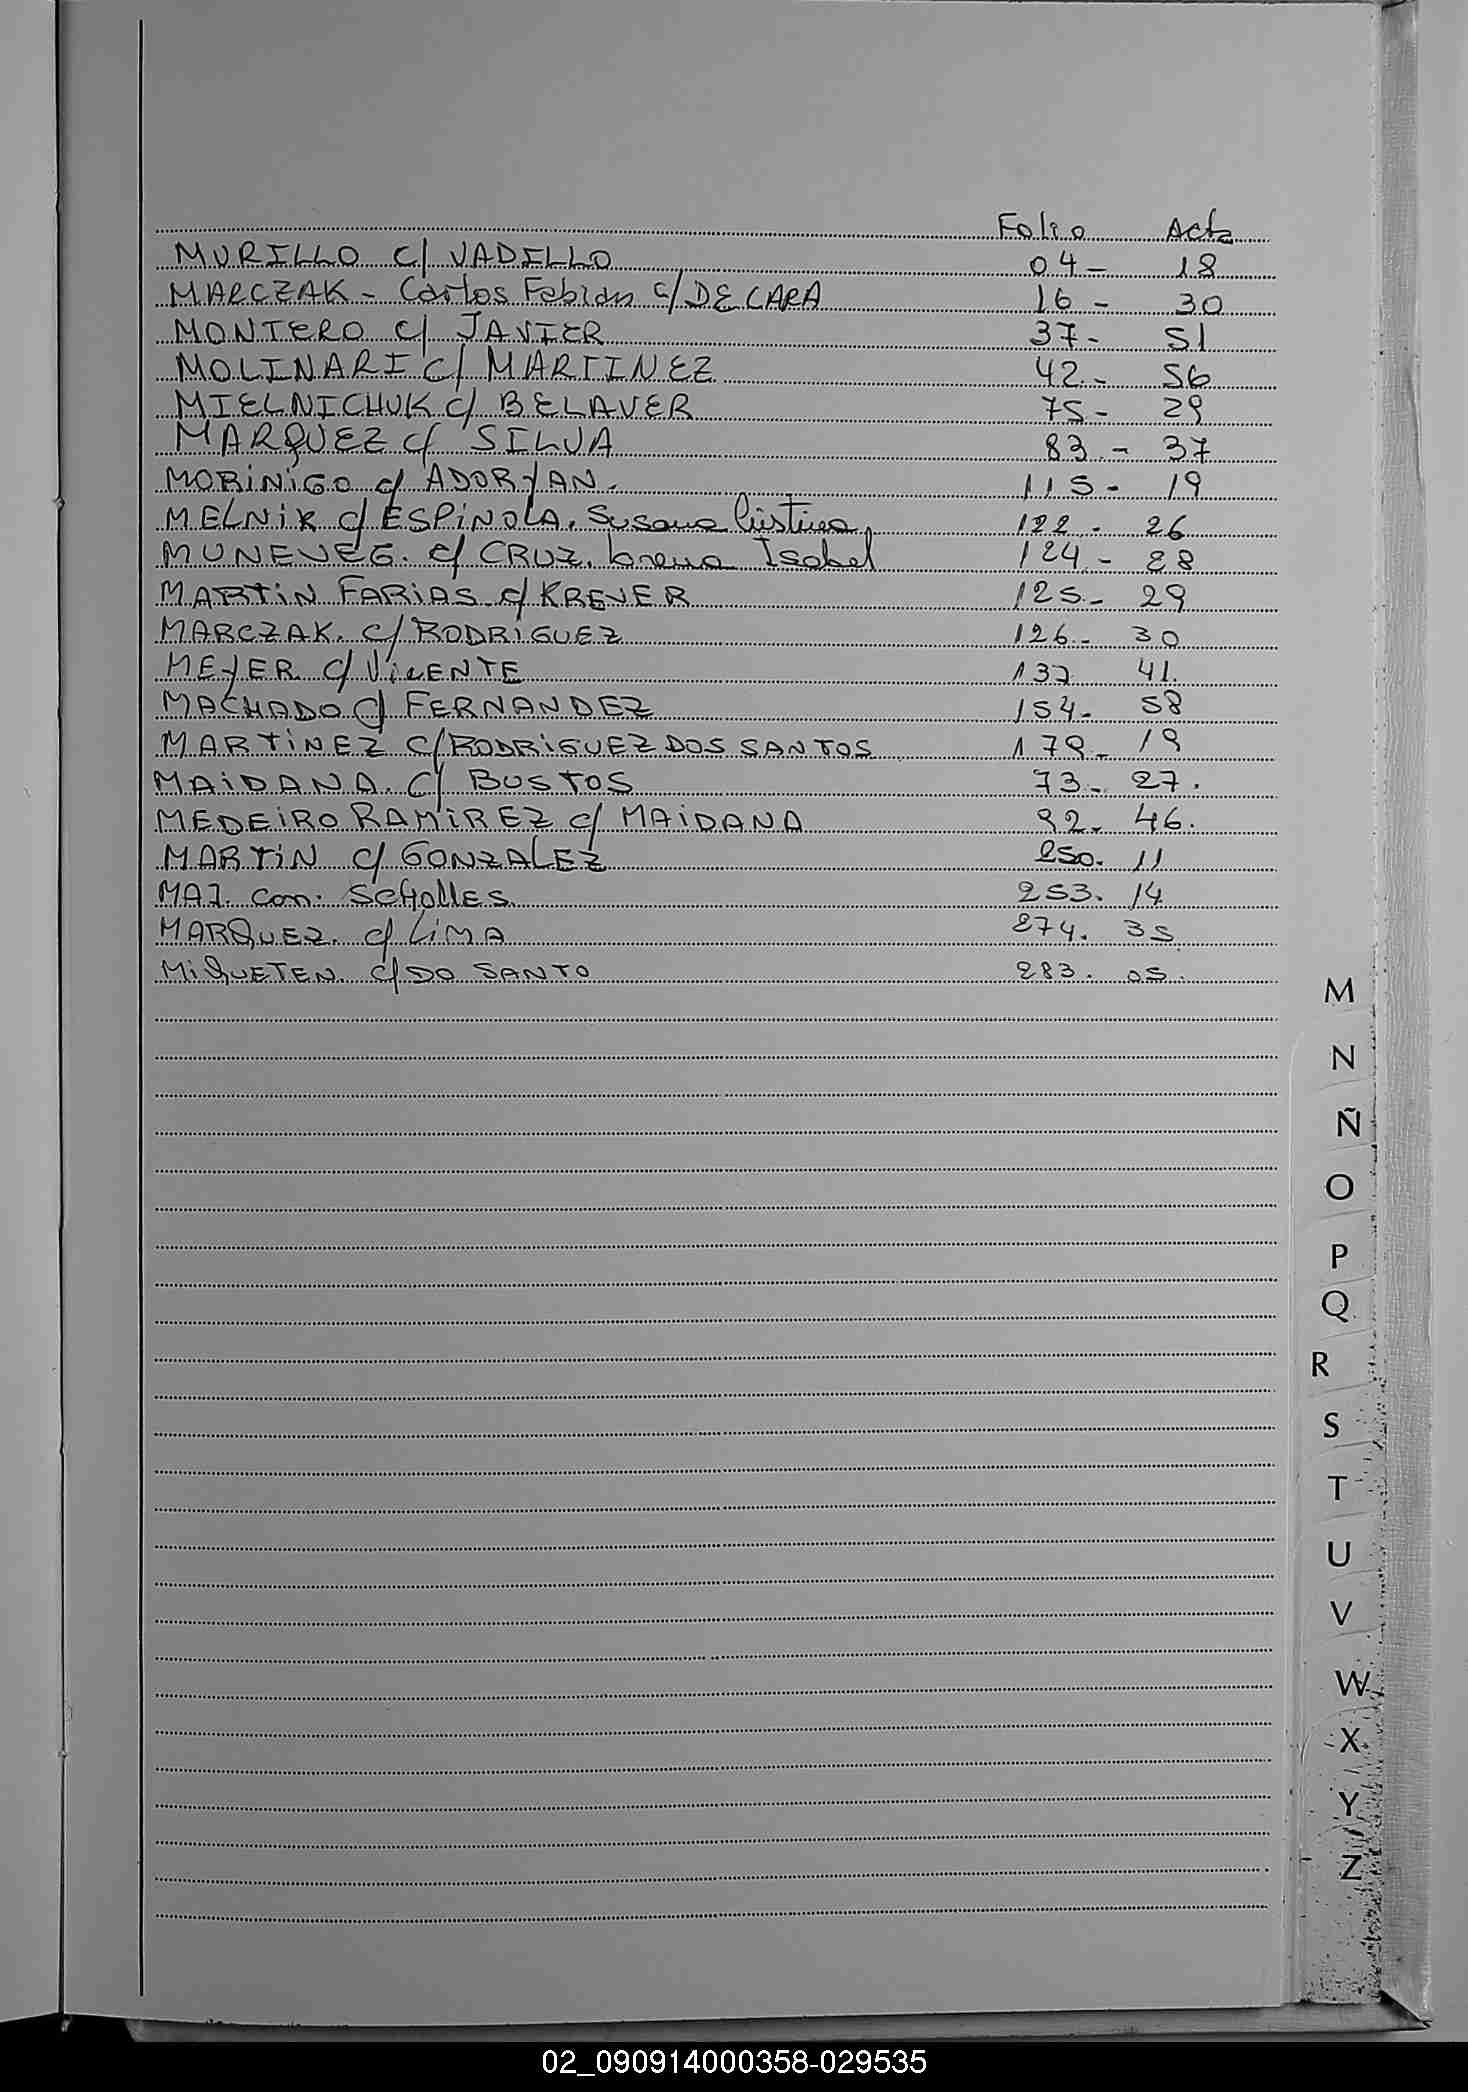 Folio Acta
MURILLO c/ VADILLO 04 - 18
MARCZAK - Carlos Fabian c/ DE CARA 16 - 30
MONTERO c/ JAVIER 37 - 51
MOLINARI c/ MARTINEZ 42 - 56
MIELNICHUK c/ BELAVER 75 - 29
MARQUEZ c/ SILVA 83 - 37
MORiNiGO c/ ADORyAN. 115 - 19
MELNiK c/ ESPiNOLA. Susana Cristina. 122 - 26
c/ CRUZ. Lorena Isabel 124 - 28
MARTiN FARiAS c/ KREVER 125 - 29
MARCZAK. c/ RODRiGUEZ 126 - 30
MEyER c/ ViCENTE 137 41.
MACHADO c/ FERNANDEZ 154 - 58
MARTiNEZ c/ RODRiGUEZ DOS SANTOS 179 - 19
MAiDANA. c/ BUSTOS 73 - 27.
MEDEiRO RAMiREZ c/ MAiDANA 92 - 46.
MARTiN c/ GONZALEZ 250. 11
con. 253. 14
MARQUEZ. c/ LiMA 274. 35
MiQUETEN. c/ DO SANTO 283. 05.
M
N
Ñ
O
P
Q
R
S
T
U
V
W
X
Y
Z
02_090914000358-029535